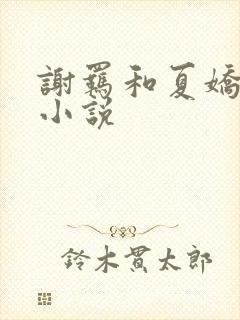 謝羈和夏嬌
小説
鈴木貫太郎